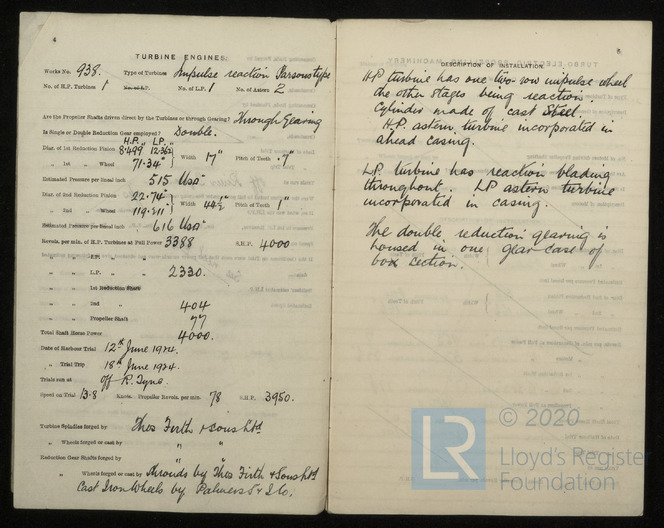 4
TURBINE ENGINES.
Works No. 938. Type of Turbines Impulse reaction Parsons type
No. of H.P. Turbines 1 No. of I.P. No. of L.P. 1 No. of Astern 2
Are the Propeller Shafts driven direct by the Turbines or through Gearing? Through Gearing
Is Single or Double Reduction Gear employed? Double.
H.P. L.P.
Diar. of 1st Reduction Pinion 8.499 12.362" Width 17" Pitch of Teeth .7"
„ 1st „ Wheel 71.34"
Estimated Pressure per lineal inch 515 lbs
Diar. of 2nd Reduction Pinion 22.74" Width 44½" Pitch of Teeth 1"
„ 2nd „ Wheel 119.211"
Estimated Pressure per lineal inch 616 lbs
Revols. per min. of H.P. Turbines at Full Power 3388 S.H.P. 4000
„ „ I.P. „ „
„ „ L.P. „ „ 2330.
„ „ 1st Reduction Shaft
„ „ 2nd „ 404
„ „ Propeller Shaft 77
Total Shaft Horse Power 4000.
Date of Harbour Trial 12th June 1924.
„ Trial Trip 18th June 1924.
Trials run at off R. Tyne.
Speed on Trial 13.8 Knots. Propeller Revols. per min. 78 S.H.P. 3950.
Turbine Spindles forged by Thos Firth & Sons Ltd
„ Wheels forged or cast by „ „
Reduction Gear Shafts forged by „ „
„ Wheels forged or cast by Shrouds by Thos Firth & Sons Ltd
Cast Iron Wheels by Palmers S & I Co.
5
DESCRIPTION OF INSTALLATION.
H.P. turbine has one two-row impulse wheel
the other stages being reaction.
Cylinder made of cast Steel.
H.P. astern turbine incorporated in
ahead casing.
L.P. turbine has reaction blading
throughout. L.P. astern turbine
incorporated in casing.
The double reduction gearing is
housed in one gear-case of
box section.
© 2020
LR
Lloyd's Register
Foundation